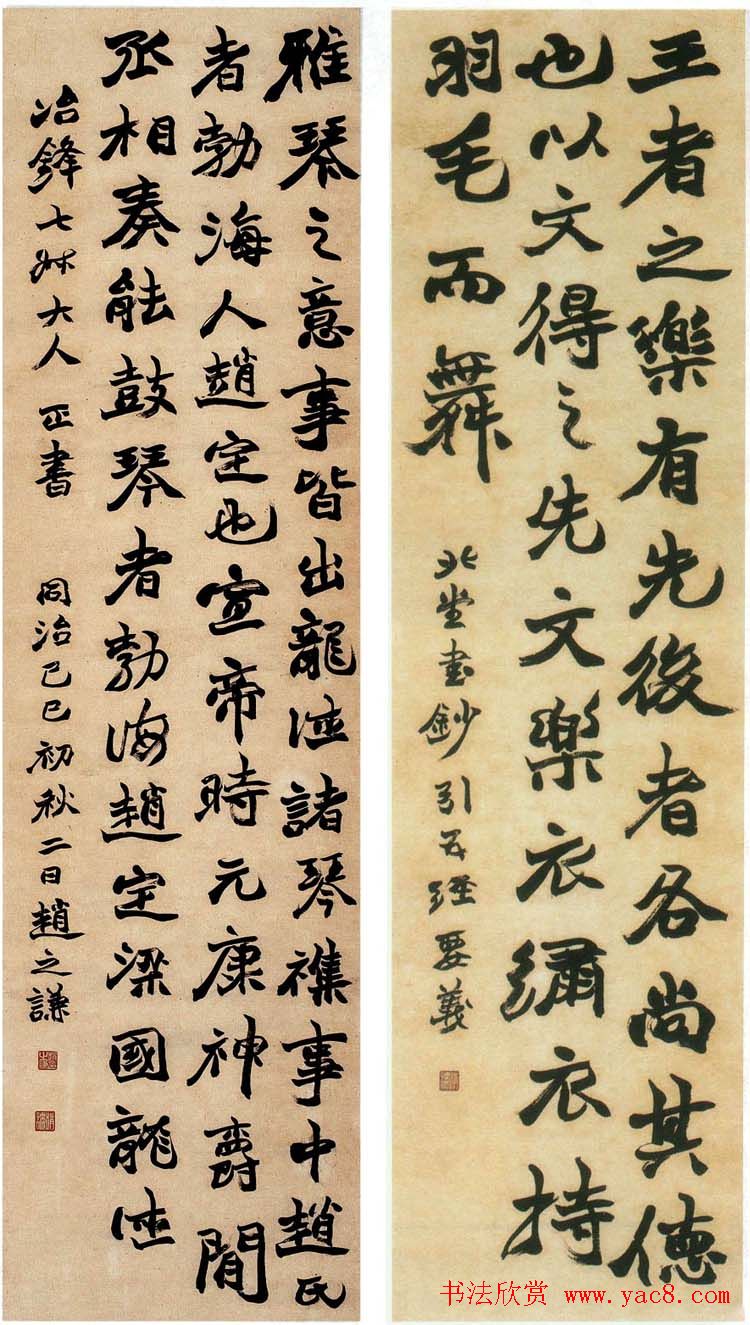 王者之樂有先後者各尚其德
也以文得之先文樂衣繡衣持
羽毛而舞
北堂書鈔引五經要義
雅琴之意事皆出龍德諸琴襍事中趙氏
者勃海人趙定也宣帝時元康神爵閒
丞相奏能鼓琴者勃海趙定梁國龍德
冶鋒七姊大人正書 同治己巳初秋二日趙之謙
书法欣赏 www.yac8.com